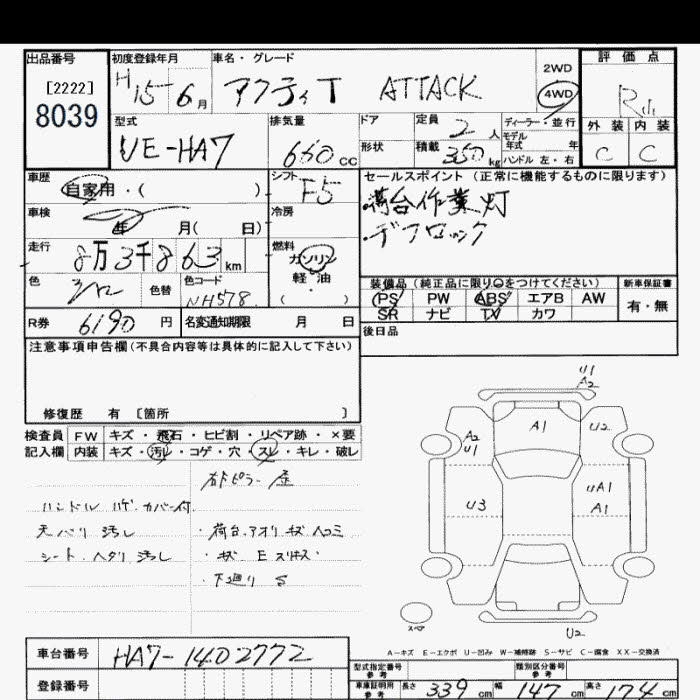 出品番号 初度登録年月 車名・グレード 2WD 評価点
[2222] H 15 - 6 月 アクティ T ATTACK 4WD
8039
型式 排気量 ドア 定員 2 人 ディーラー・並行 外装 内装
UE-HA7 660 CC モデル年式 年
形状 積載 350 kg ハンドル 左・右 C C
車歴 自家用・( ) シフト F5 セールスポイント(正常に機能するものに限ります)
車検 年 月( 日) 冷房 荷台作業灯
走行 8万3千863 km 燃料 ガソリン デフロック
軽・油
色 色替 色コード NH578 ・( ) 装備品(純正品に限り○をつけてください) 新車保証書
PS PW ABS エアB AW 有・無
SR ナビ TV カワ
R券 6190 円 名変通知期限 月 日 後日品
注意事項申告欄(不具合内容等は具体的に記入して下さい)
修復歴 有 〔箇所 〕
検査員 FW キズ・飛石・ヒビ割・リペア跡・×要
記入欄 内装 キズ・汚レ・コゲ・穴・スレ・キレ・破レ
ハンドル ハゲ カバー付
天バリ 汚レ ・荷台アオリ キズ ヘコミ
シート・ヘタリ 汚レ ・キズ E スリキズ
・下廻り S
U1
A2
A1
U2
A2
U1
U3
UA1
A1
スペア
U2
A-キズ E-エクボ U-凹み W-補修跡 S-サビ C-腐食 XX-交換済
車台番号 HA7-1402772
登録番号
型式指定番号 参考 類別区分番号 参考
車庫証明用 参考 長さ 339 cm 幅 147 cm 高さ 174 cm